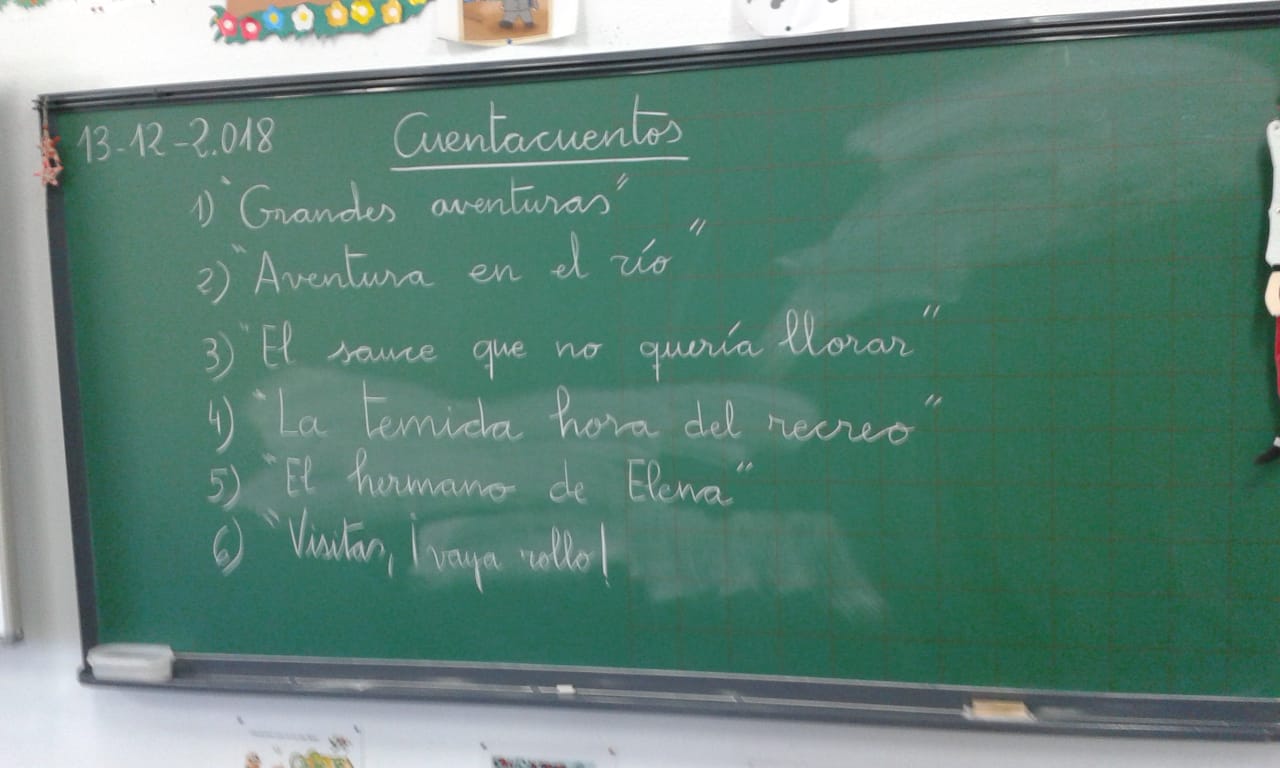 13-12-2.018
Cuentacuentos
1) "Grandes aventuras"
2) "Aventura en el río"
3) "El sauce que no quería llorar"
4) "La temida hora del recreo"
5) "El hermano de Elena"
6) "Visitas, ¡vaya rollo!